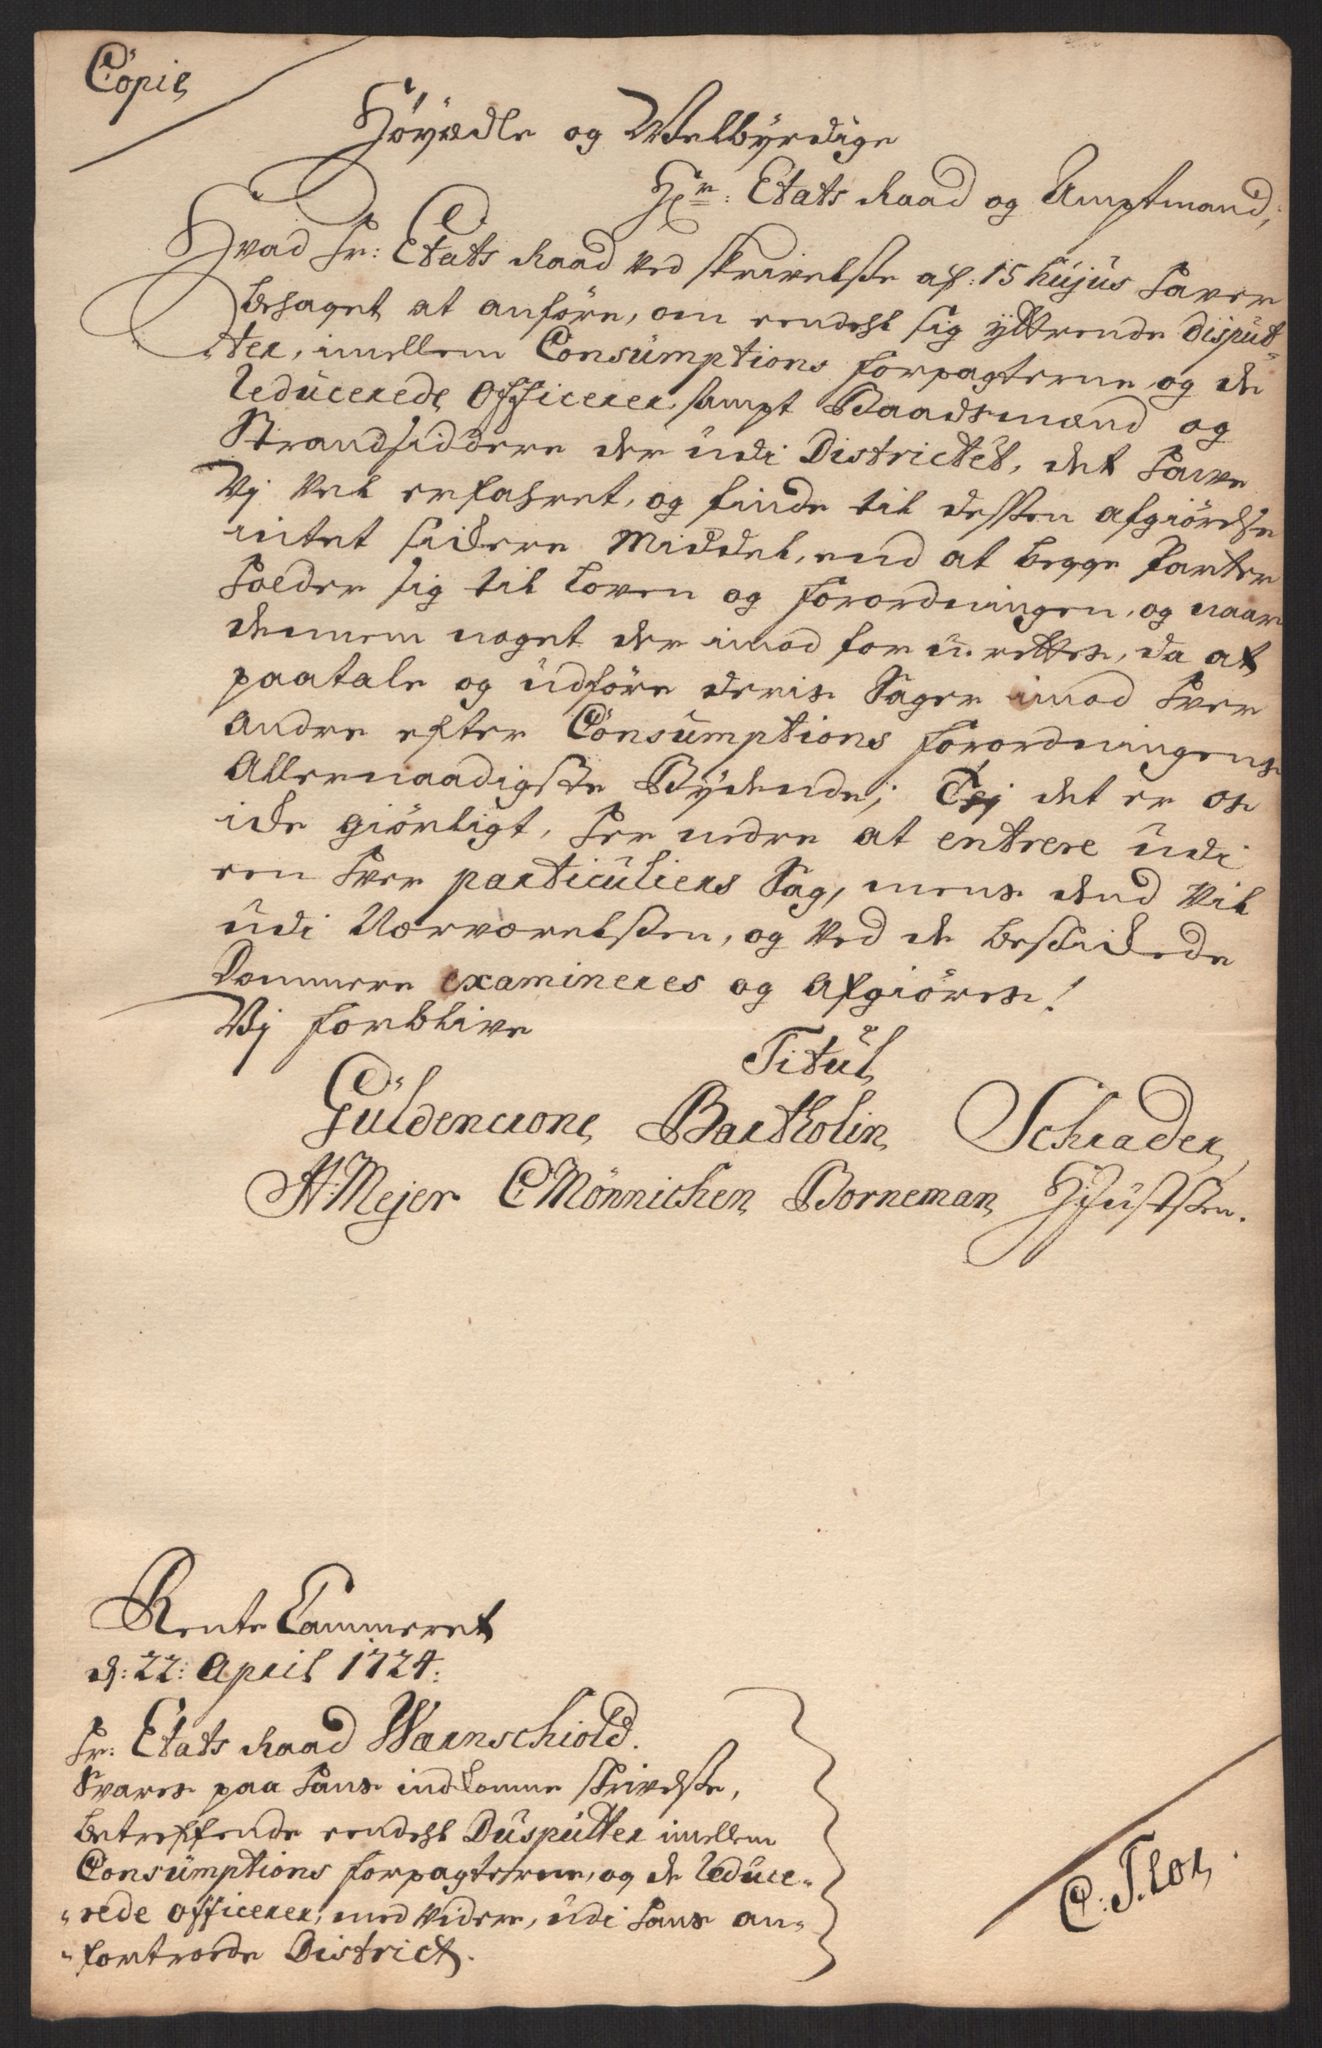 Copie
Höyædle og Welbÿrdige
Hr: Etats Raad og Amptmand,
Hvad Hr: Etats Raad ved skrivelse af: 15 hujus haver
behaget at anföre, om eendehl sig ÿttrende disput-
ter, imellem Consumptions forpagterne og de
reducerede Officerer, sampt Baadsmænd og
Strandsiddere der udi Districtet, det have
Vj vel erfahret, og finde til dessen afgiörelse
intet sickere Middel, end at begge Parter
holder sig til Loven og forordningen, og naar
dennem noget der imod forurettes, da at
paatale og udföre deris Sager imod hver
andre efter Consumptions forordningens
Allernaadigste Bÿdende; Thj det er os
icke giörligt, her nedre at entrere udi
een hver particuliers Sag, mens dend vil
udi Nærværelsen, og ved de beskickede
Dommere examineres og afgiöres!
Vj forblive
Titul
Güldencrone Bartholin Schrader
A: Mejer C Mönnichen Borneman H Justsen.
Rente Cammeret
d: 22: April 1724:
Hr: Etats Raad Wærnschiold.
Svares paa hans indkomne skrivelse,
betreffende eendehl Dusputter imellem
Consumptions forpagterne, og de reduce-
-rede officerer, med videre, udi hans an-
-fortroede District.
C: Flor.